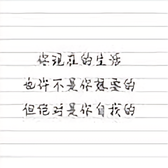 你现在的生活
也许不是你想要的
但绝对是你自找的